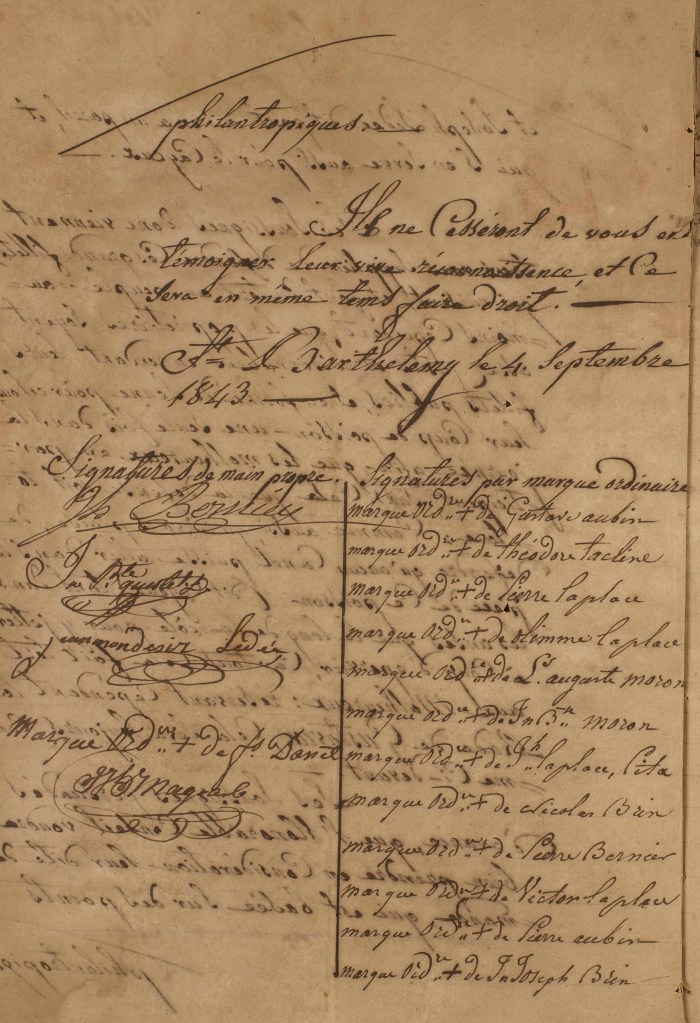 philantropiques.
Ils ne Cesseront de vous en
témoigner leur vive réconnoissence, et Ce
Sera en même tems faire droit.
St. Barthelemy le 4. Septembre
1843.
Signatures de main propre.
Bernier
J. n B.te
jean mondesir Lédée
Marque Ord.re + de fs. Danet
Signatures par marque ordinaire
marque Ord.re + de Gustave aubin
marque Ord.re + de théodore tacline
marque Ord.re + de Pierre laplace
marque Ord.re + de olimme laplace
marque Ord.re + de Ls. auguste moron
marque Ord.re + de Jn B.te moron
marque Ord.re + de Jh. laplace,
marque Ord.re + de Nicolas Brin
marque Ord.re + de Pierre Bernier
marque Ord.re + de Victor laplace
marque Ord.re + de Pierre aubin
marque Ord.re + de Jn Joseph Brin